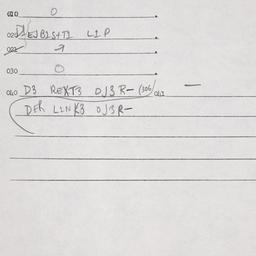 010 0
020 EJBIS+TI LIP
022 →
030 0
040 D3 REXT3 DJ3 R- (306/042 —
DEh LINK3 DJ3R-